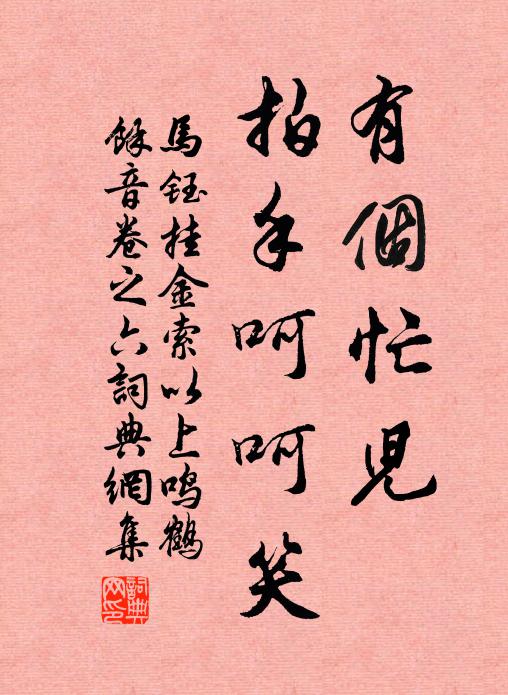 有個忙児
拍手呵呵笑
馬鈺挂金索以上鳴鶴
餘音卷之六詞典網集
詞典网印